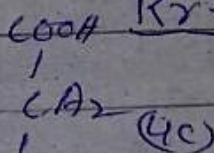 COOH Kr
CH2
(4C)